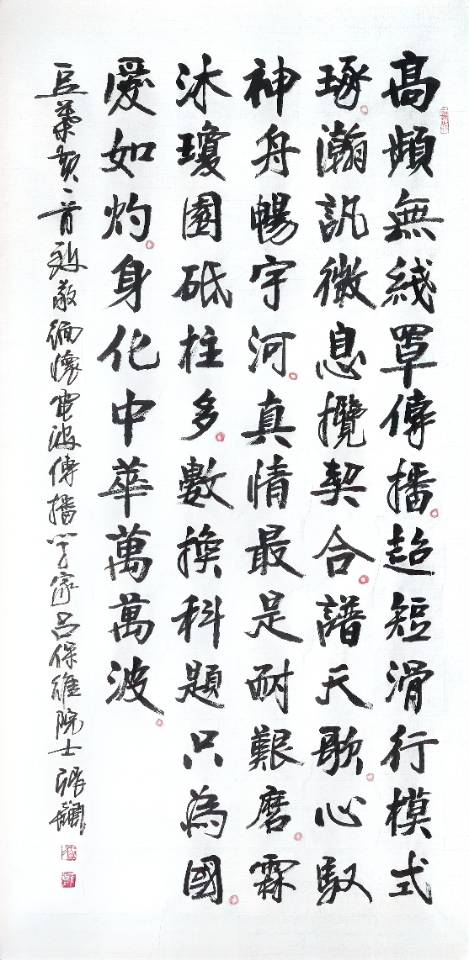 高頻無綫罩傳播。超短滑行模式
琢。瀚訊微息攬契合。譜天歌。心馭
神舟暢宇河。真情最是耐艱磨。霖
沐瓊園砥柱多。數換科題只為國。
愛如灼。身化中華萬萬波。
豆葉黃二首致敬緬懷電波傳播學家呂保維院士 張